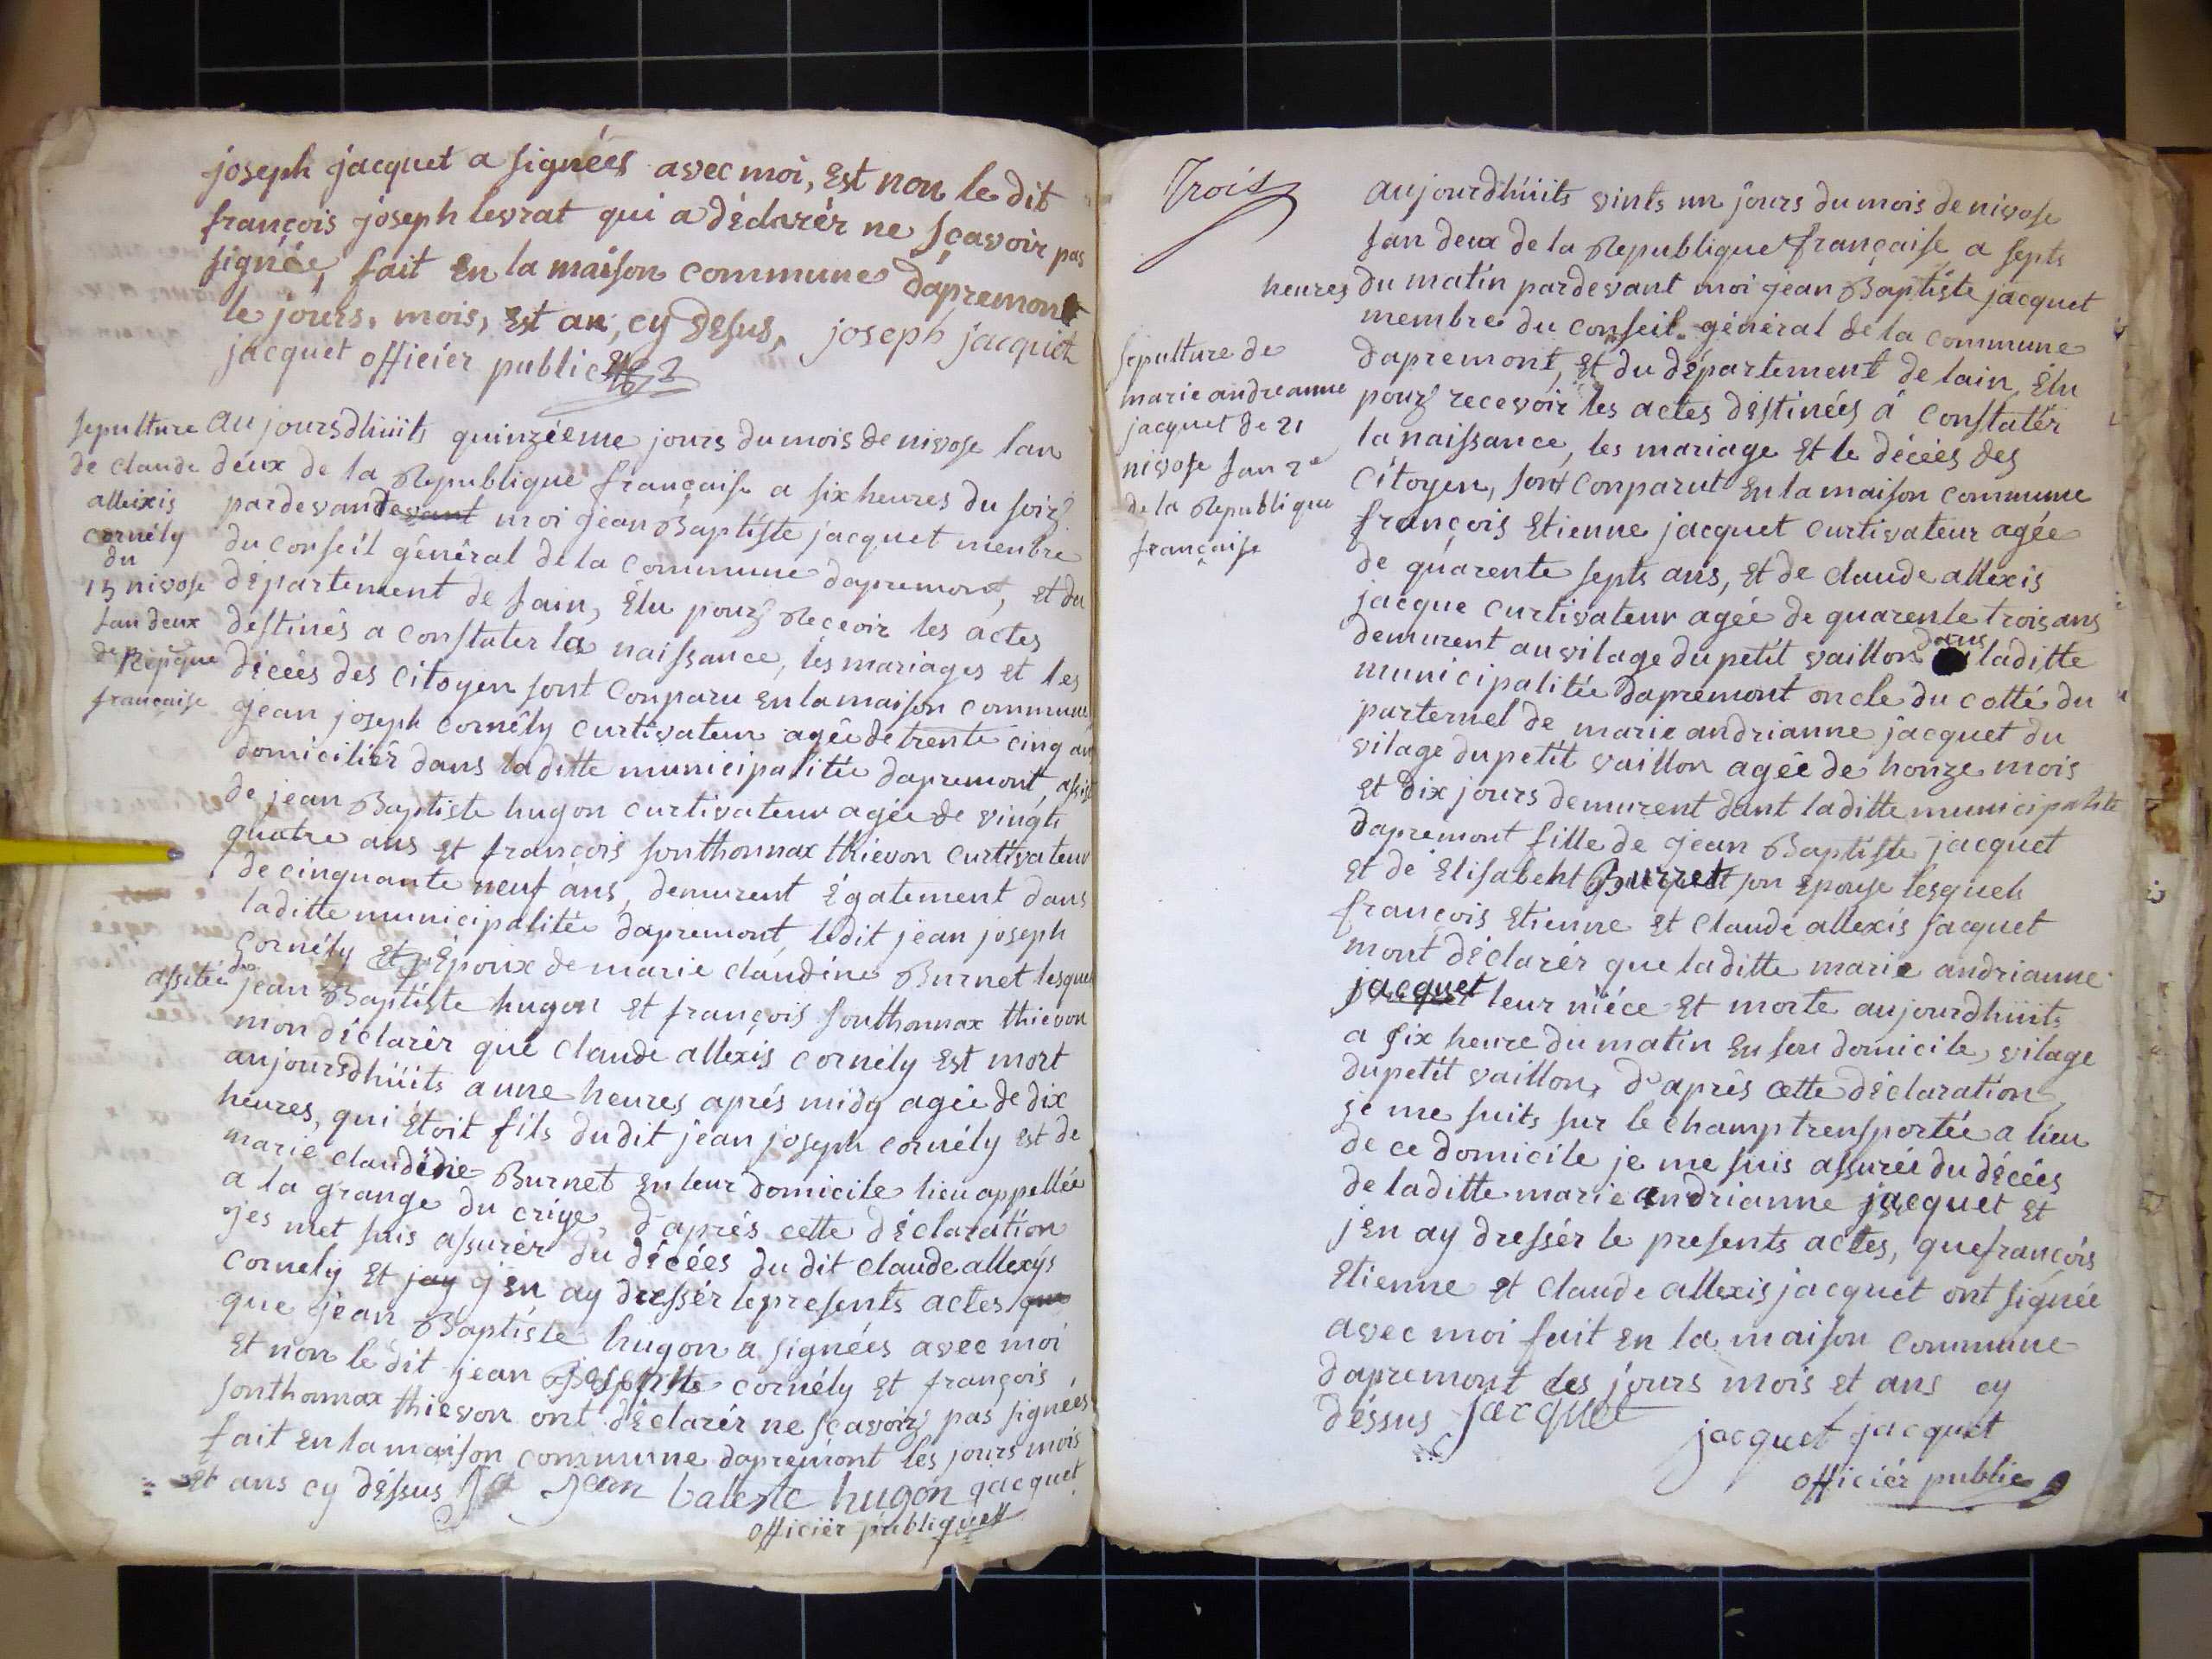 joseph jacquet a signées avec moi, Est non le dit
françois joseph levrat qui a déclarér ne sçavoir pas
signée, fait En la maison commune dapremont
le jours, mois, Est an, cy desus, joseph jacquet
jacquet officiér public
sepulture
de claude
alleixis
cornély
du
15 nivose
lan deux
de
française
au joursdhüits quinziéeme jours du mois de nivose lan
déux de la Republique française a six heures du soir
pardevandevant moi jean Baptiste jacquet menbre
du conseil général de la commune dapremont, et du
départemént de lain, Élu pour Reçevoir les actes
destinés a constater la naissance, les mariages et les
décéés des Citoyen sont Conparu En la maison commune
jean joseph cornély curtivateur agée de trente cinq ans
domiciliér dans laditte municipalitée dapremont,
de jean Baptiste hugon curtivateur agée de vingts
quatre ans Et françois sonthonnax thievon curtivateur
de cinquante neuf ans, demurent Également dans
laditte municipalitée dapremont, ledit jean joseph
Cornély Époux de marie claudine Burnet lesquel
assitée de jean Baptiste hugon Et françois sonthonnax thiévon
mon déclarér qué claude allexis cornély Est mort
aujoursdhüits a une heures aprés midy agée de dix
heures, qui Étoit fils dudit jean joseph cornély Est de
marie claudine Burnet En leur domicile lieu appellée
a la grange du crige, d'aprés cette déclaration
jes met suis assurér du décées du dit claude allexys
Cornely Et jay jEn ay dressér le presents actes que
que jean Baptiste hugon a signées avec moi
Et non le dit jean cornély Et françois
sonthonnax thievon ont déclarér ne sçavoir pas signées
fait En la maison commune dapremont les jours mois
Et ans cy déssus jean batiste hugon jacquet
officiér publique
Trois
sepulture de
marie andreanne
jacquet de 21
nivose lan 2e
de la Republique
française
aujourdhüits vints un jours du mois de nivose
lan deux de la Republique française a septs
heures du matin pardevant moi jean Baptiste jacquet
membre du conseil général de la commune
dapremont, Et du département de lain Élu
pour recevoir les actes déstinées á constatér
la naissance, les mariage et le décées des
Citoyen, sont conparut En la maison commune
françois Etienne jacquet curtivateur agée
de quarente septs ans, Et de claude allexis
jacque curtivateur agée de quarente trois ans
demurent au vilage du petit vaillon dans laditte
municipalitée dapremont oncle du cotté du
parternel de marie andrianne jacquet du
vilage du petit vaillon agée de honze mois
et dix jours demurent dant laditte municipalité
dapremont fille de jean Baptiste jacquet
Et de Élisabeht Burret son Epouse lesquels
françois Etienne Et Claude allexis jacquet
mont déclarér que laditte marie andrianne
jacquet leur niéce Et morte aujourdhüits
a six heure du matin En son domicile, vilage
du petit vaillon, d'aprés cette déclaration
je me suits sur le champ trensportée a lieu
de ce domicile je me suis assurée du décées
de laditte marie andrianne jacquet Et
jEn ay dressér le presents actes, que françois
Etienne Et Claude allexis jacquet ont signée
avec moi fait En la maison commune
dapremont les jours mois Et ans cy
déssus jacquet
jacquet jacquet
officiér public